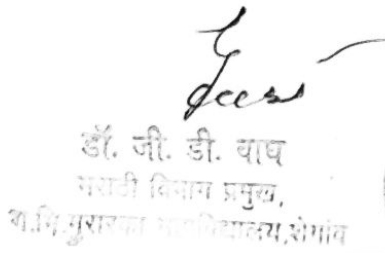 डॉ. जी. डी. वाघ
मराठी विभाग प्रमुख,
श.मि.मुरारका महाविद्यालय,शेगांव